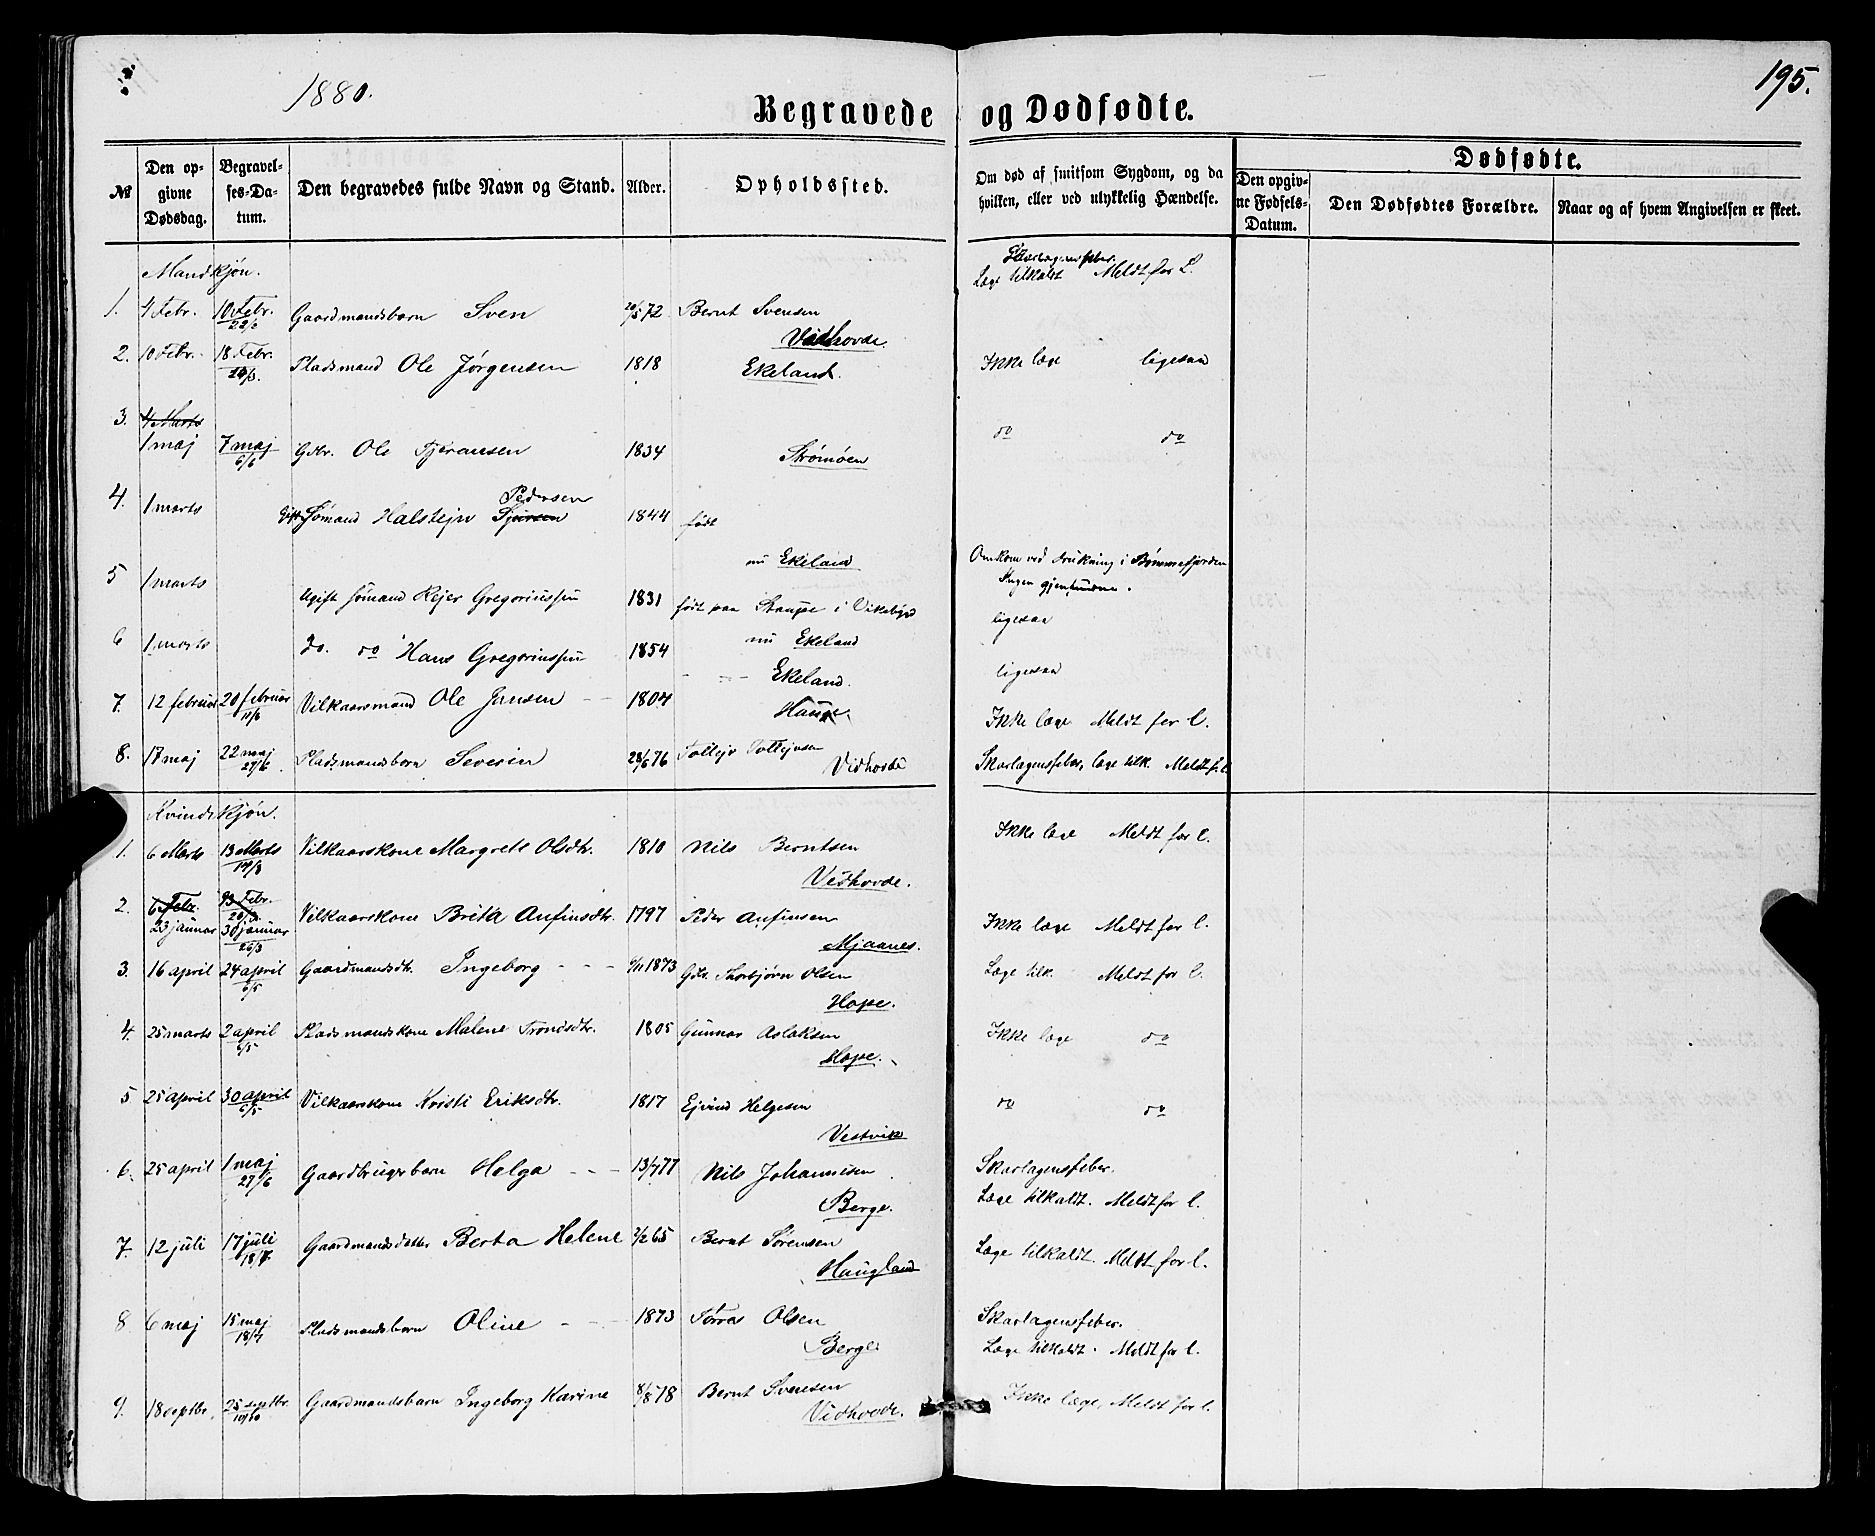 1880.
195.
Begravede og Dødfødte.
№
Den opgivne Dødsdag.
Begravelses-Datum.
Den begravedes fulde Navn og Stand.
Alder.
Opholdssted.
Om død af smitsom Sygdom, og da hvilken, eller ved ulykkelig Hændelse.
Dødfødte.
Den opgivne Fødsels-Datum.
Den Dødfødtes Forældre.
Naar og af hvem Angivelsen er skeet.
Mandkjøn.
1. 4 Febr. 10 Febr. 22/2 Gaardmandsbarn Sven 20/5 72 Bernt Svensen Vidhovde. Læge tilkaldt Meldt for L.
2. 10 Febr. 18 Febr. Pladsmand Ole Jørgensen 1818 Ekeland. Ikke læge ligesaa
3. 4 Marts
1 maj 7 maj 6/6 Gdbr. Ole Tjeransen 1834 Strømøen do do
4. 1 marts Gift Sømand Halstejn Pedersen 1844 født
nu Ekeland Omkom ved drukning i Bømmelfjorden Ingen gjenfundne.
5 1 marts Ugift sømand Rejer Gregoriussen 1831 født paa Staupe i Vikebygd
nu Ekeland ligesaa
6 1 marts do. do Hans Gregoriussen 1854 Ekeland. ligesaa
7. 12 februar 20 februar Vilkaarsmand Ole Jansen 1804 Hauge. Ikke læge Meldt for l.
8. 17 maj 22 maj 27/6 Pladsmandsbarn Severin 28/6 76 Tollejv Tollejvsen Vidhovde Skarlagensfeber, læge tilk. Meldt f. l.
Kvindekjøn.
1. 6 Marts 13 Marts 14/3 Vilkaarskone Margrete Olsdtr. 1810 Nils Berntsen Vidhovde. Ikke læge Meldt for l.
2. 6 Febr. 13 Febr.
23 januar 30 januar 26/3 Vilkaarskone Brita Anfinsdtr. 1797 Peder Anfinsen Mjaanes. Ikke læge Meldt for l.
3. 16 april 24 april 6/5 Gaardmandsdtr. Ingeborg 9/11 1873 Gdbr. Thorbjørn Olsen Hope. Læge tilk. Meldt for l.
4. 25 marts 2 april 6/5 Pladsmandskone Malene Trondsdtr. 1805 Gunnar Aslaksen Hope. Ikke læge do
5 25 april 30 april 6/5 Vilkaarskone Kristi Eriksdtr. 1817 Ejvind Helgesen Vestvik do do
6. 25 april 1 maj 27/6 Gaardbrugerbarn Helga 13/7 77 Nils Johannesen Berge. Skarlagensfeber.
Læge tilkaldt. Meldt for l.
7. 12 juli 17 juli 18/7 Gaardmandsdatter Berta Helene 2/2 65 Bernt Sørensen Haugland Læge tilkaldt. Meldt for l.
8 6 maj 15 maj 18/7 Pladsmandsbarn Oline 1873 Olsen Berge Skarlagensfeber.
Læge tilkaldt. Meldt for l.
9. 18 septbr. 25 septbr. 10/10 Gaardmandsbarn Ingeborg Karine 8/8 78 Bernt Svensen Vidhovde. Ikke læge, Meldt for l.